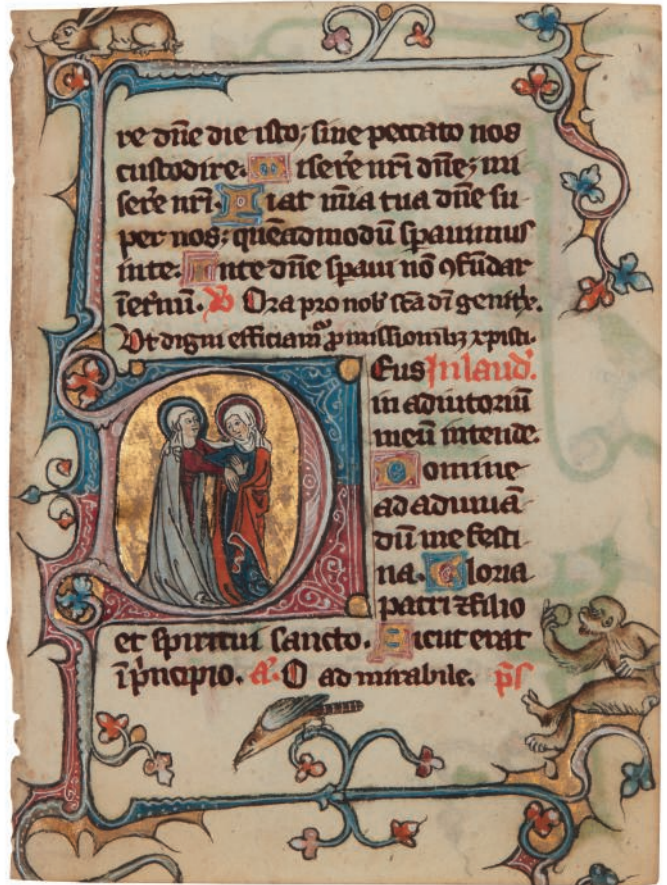 re dn̄e die isto; sine peccato nos
custodire. Miserēre nr̄i dn̄e; mi
serēre nr̄i. Fiat m̄ia tua dn̄e su
per nos; quēadmodū spauimus
inte. Inte dn̄e spaui nō ꝯfūdar
īet̄nū. V̄ Ora pro nob̄ sc̄a dı̄ genit̄x.
Vt digni efficiam̄ ꝓmissionibꝫ xp̄isti.
Eus In laud̄.
in adiutoriū
meū intende.
Domine
ad adiuuā
dū me festi
na. Gloria
patri ⁊ filio
et spiritui sancto. Sicut erat
ī pͥncipio. a᷒. O admirabile. p̄s